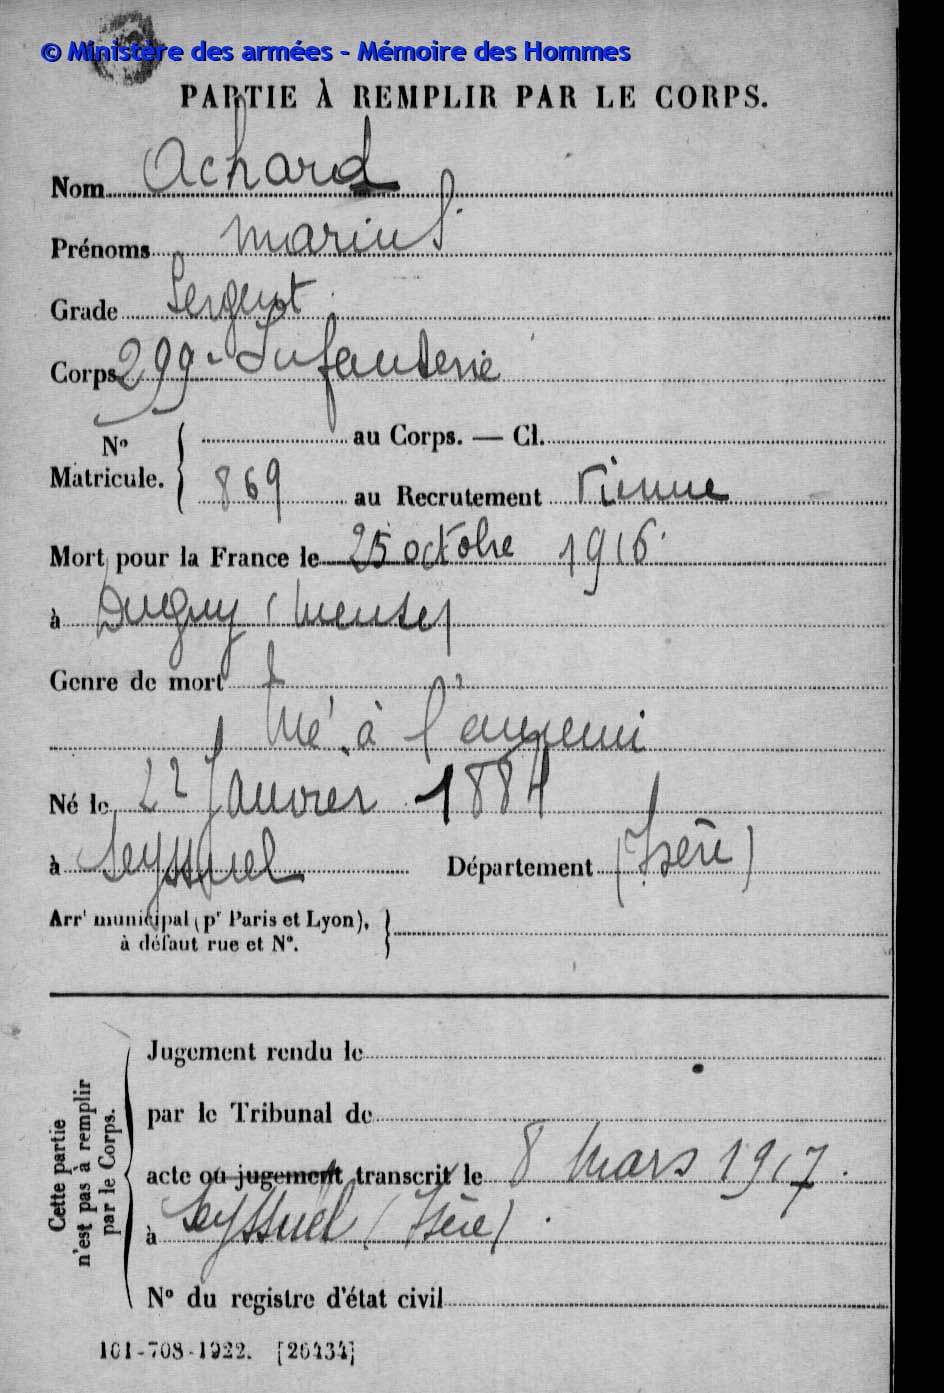 © Ministère des armées - Mémoire des Hommes
PARTIE À REMPLIR PAR LE CORPS.
Nom Achard
Prénoms Marius
Grade Sergent
Corps 299e Infanterie
No Matricule. { au Corps. — Cl.
869 au Recrutement Vienne
Mort pour la France le 25 octobre 1916
à Dugny (Meuse)
Genre de mort
tué à l'ennemi
Né le 22 Janvier 1884
à Seyssuel Département (Isère)
Arrt municipal (pr Paris et Lyon),
à défaut rue et No.
Cette partie
n'est pas à remplir
par le Corps.
Jugement rendu le
par le Tribunal de
acte ou jugement transcrit le 8 mars 1917.
à Seyssuel (Isère).
No du registre d'état civil
101-708-1922. [26434]